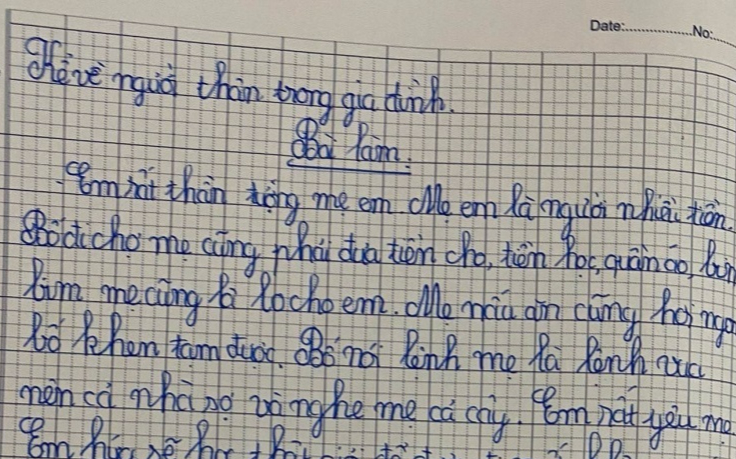 Date:..................No:.....
Kể về người thân trong gia đình.
Bài làm:
- Em rất thân tượng mẹ em. Mẹ em là người nhiều tiền.
Bố đi chợ mẹ cũng phải đưa tiền cho, tiền học, quần áo, bỉm
lim mẹ cũng là lo cho em. Mẹ nấu ăn cũng hơi ngon
bố khen tạm được. Bố nói lệnh mẹ là lệnh vua
nên cả nhà sợ và nghe mẹ cả cây. Em rất yêu mẹ
Em hứa sẽ học